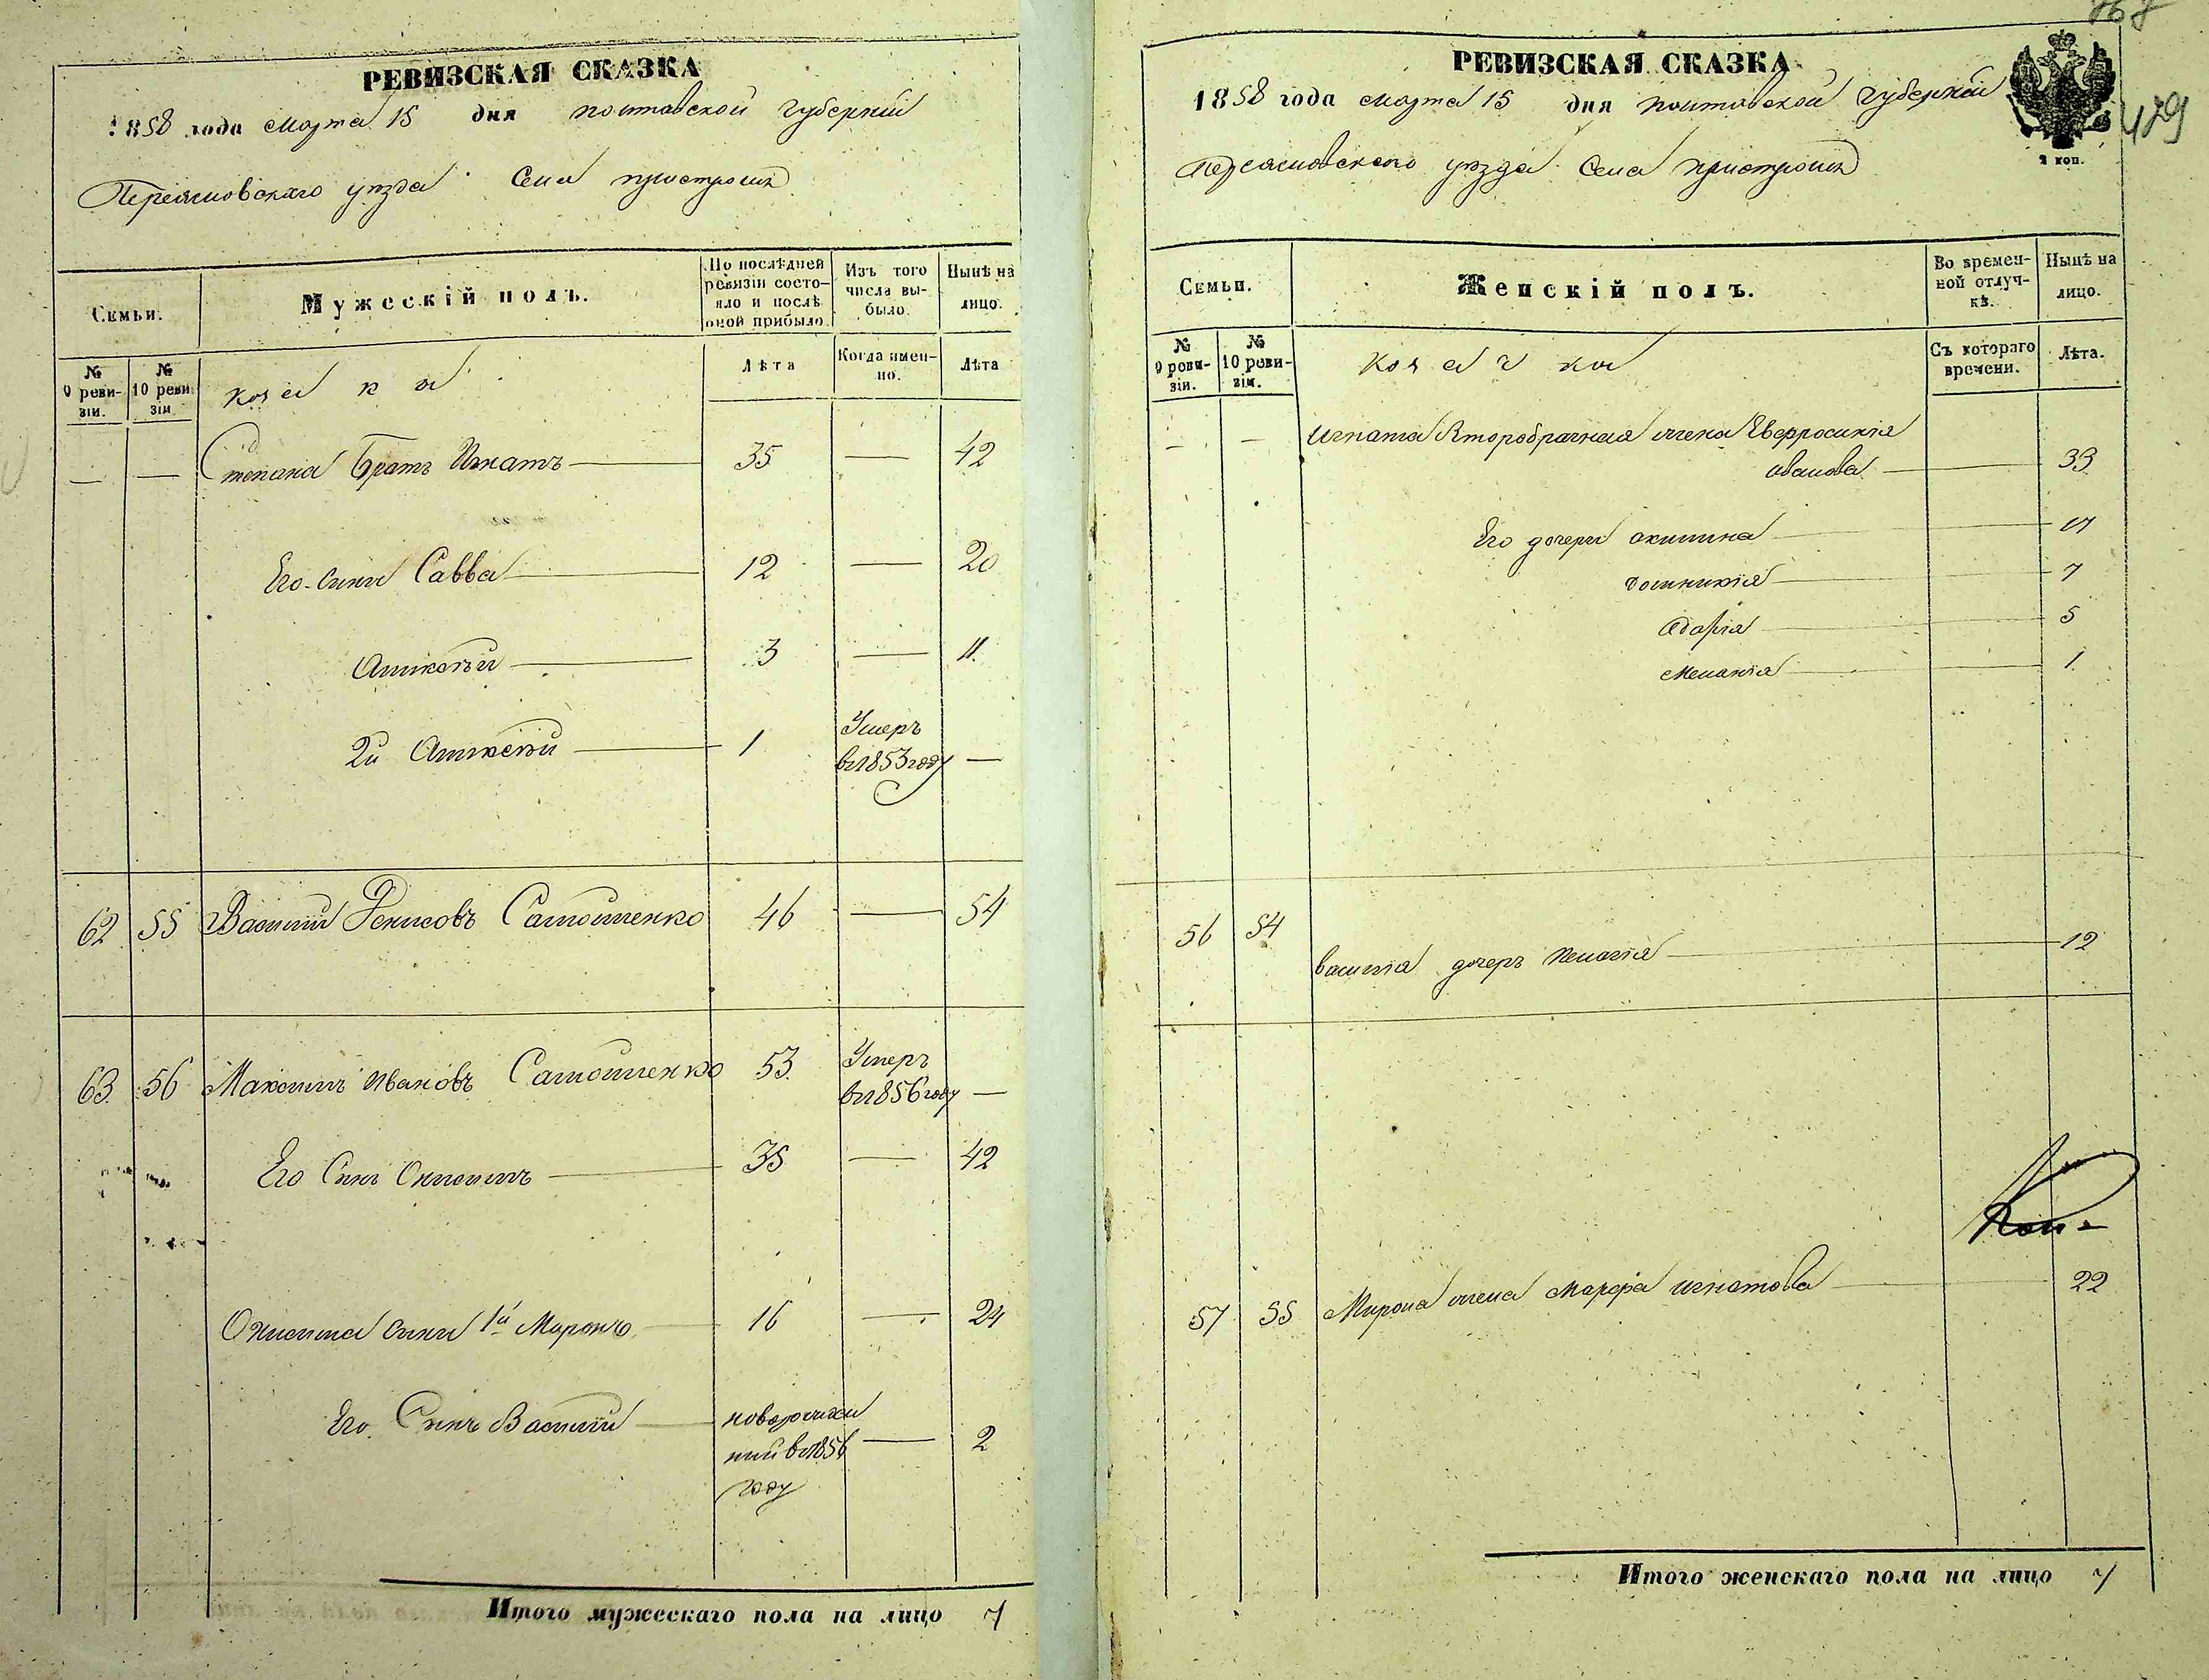 РЕВИЗСКАЯ СКАЗКА
1858 года Марта 15 дня Полтавской Губернии
Переясловскаго уезда Села Пристромъ
Семьи.
Мужескій полъ.
По послѣдней ревизіи состояло и послѣ оной прибыло.
Изъ того числа выбыло.
Нынѣ на лицо.
№ 9 ревизіи.
№ 10 ревизіи
Козака
Лѣта
Когда именно.
Лѣта
— — Степана Братъ Игнатъ 35 — 42
Его Сини Савва 12 — 20
Алексѣй 3 — 11.
2й Алексѣй 1 Умеръ
в 1853 году —
62 55 Василий Денисовъ Самойленко 46 — 54
63 56 Максимъ Ивановъ Самойленко 53 Умеръ
в 1856 году —
Его Синъ Онисимъ 35 — 42
Онисима Сини 1й Миронъ 16 — 24
Его Синъ Василий новорожден
ний в 1856 — 2
году
Итого мужескаго пола на лицо 7
РЕВИЗСКАЯ СКАЗКА
479
1858 года Марта 15 дня Полтавской Губернии
2 коп.
Переясловского уезда Села Пристромъ
Семьи.
Женскій полъ.
Во временной отлучкѣ.
Нынѣ на лицо.
№ 9 ревизіи.
№ 10 ревизіи.
Козачка
Съ котораго времени.
Лѣта.
— — Игната Второбрачная жена Евфросинія
Иванова 33
Его дочери Акилина 17
Домникія 7
Одарія 5
Меланія 1
56 54
Василія дочеръ Пелагія 12
57 55 Мирона жена Марфа Игнатова 22
Итого женскаго пола на лицо 7